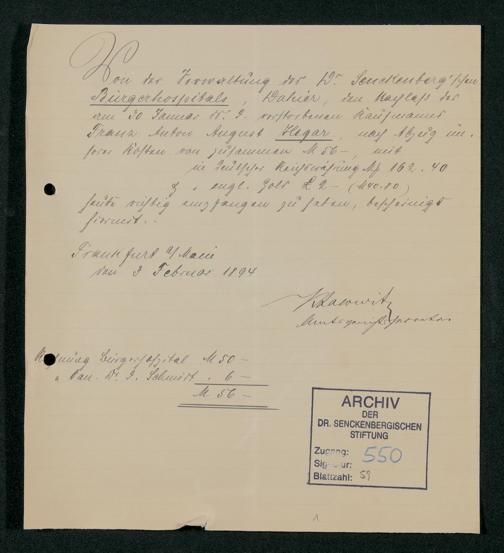 Von der Verwaltung des Dr. Senckenberg'schen
Bürgerhospitals, dahier, den Nachlaß des
am 30 Januar d. J. verstorbenen Kaufmanns
Franz Anton August Hegar, nach Abzug
Kosten von zusammen M 56 –, mit
in deutscher Reichswährung M 162. 40
engl. Gold £ 2 – (M 40.80)
heute richtig empfangen zu haben, bescheinigt
hiermit.
Frankfurt a/Main
den 3 Februar 1894
Rechnung Bürgerhospital M 50 –
" San. Dr. J. Schmidt . 6 –
M 56 –
ARCHIV
DER
DR. SENCKENBERGISCHEN
STIFTUNG
Zugang: 550
Signatur:
Blattzahl: 59